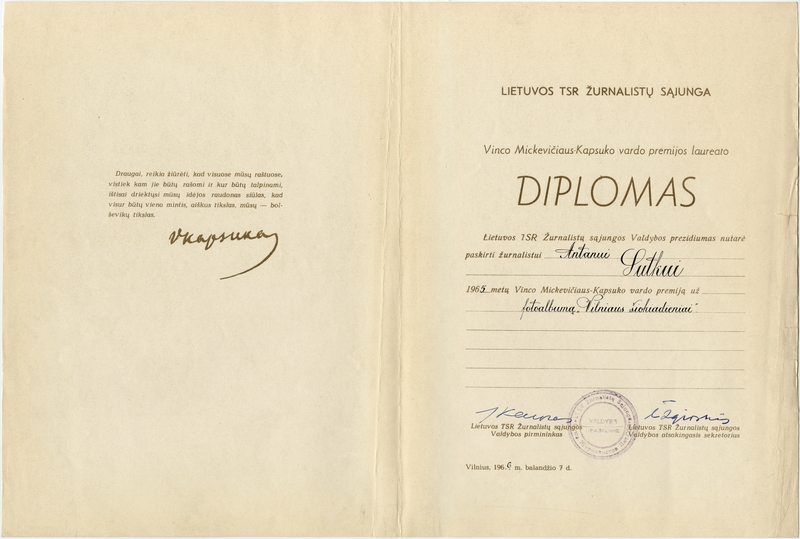 Draugai, reikia žiūrėti, kad visuose mūsų raštuose,
vistiek kam jie būtų rašomi ir kur būtų talpinami,
ištisai driektųsi mūsų idėjos raudonas siūlas, kad
visur būtų viena mintis, aiškus tikslas, mūsų — bol-
ševikų tikslas.
VKapsukas
LIETUVOS TSR ŽURNALISTŲ SĄJUNGA
Vinco Mickevičiaus-Kapsuko vardo premijos laureato
DIPLOMAS
Lietuvos TSR Žurnalistų sąjungos Valdybos prezidiumas nutarė
paskirti žurnalistui Antanui
Sutkui
1965 metų Vinco Mickevičiaus-Kapsuko vardo premiją už
fotoalbumą „Vilniaus šiokiadieniai".
Lietuvos TSR Žurnalistų sąjungos
Valdybos pirmininkas
VALDYBA
Lietuvos TSR Žurnalistų sąjungos
Valdybos atsakingasis sekretorius
Vilnius, 1966 m. balandžio 7 d.